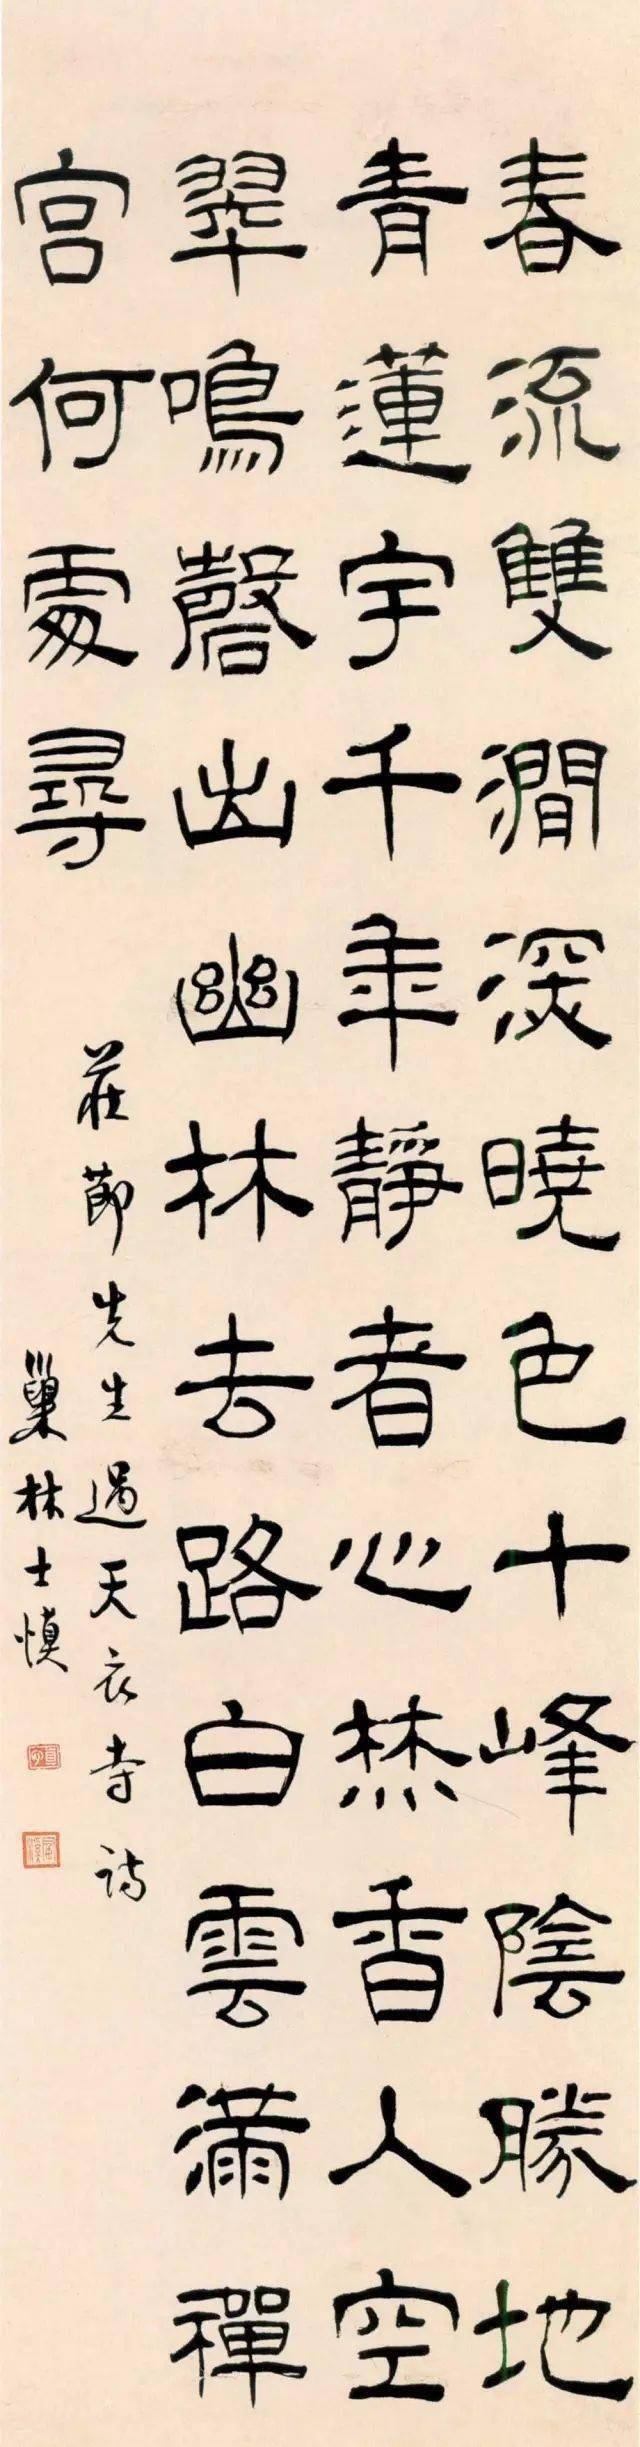 春流雙澗深曉色十峰陰勝地
青蓮宇千年靜者心焚香人空
翠鳴磬出幽林去路白雲滿禪
宮何處尋
莊節先生過天衣寺詩
巢林士慎